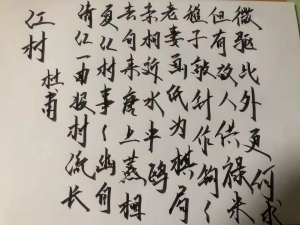 江村
杜甫
清江一曲抱村流长
夏江村事々幽自
去自来堂上燕相
亲相近水中鸥
老妻画纸为棋局
稚子敲针作钩
但有故人供禄米
微躯此外更何求